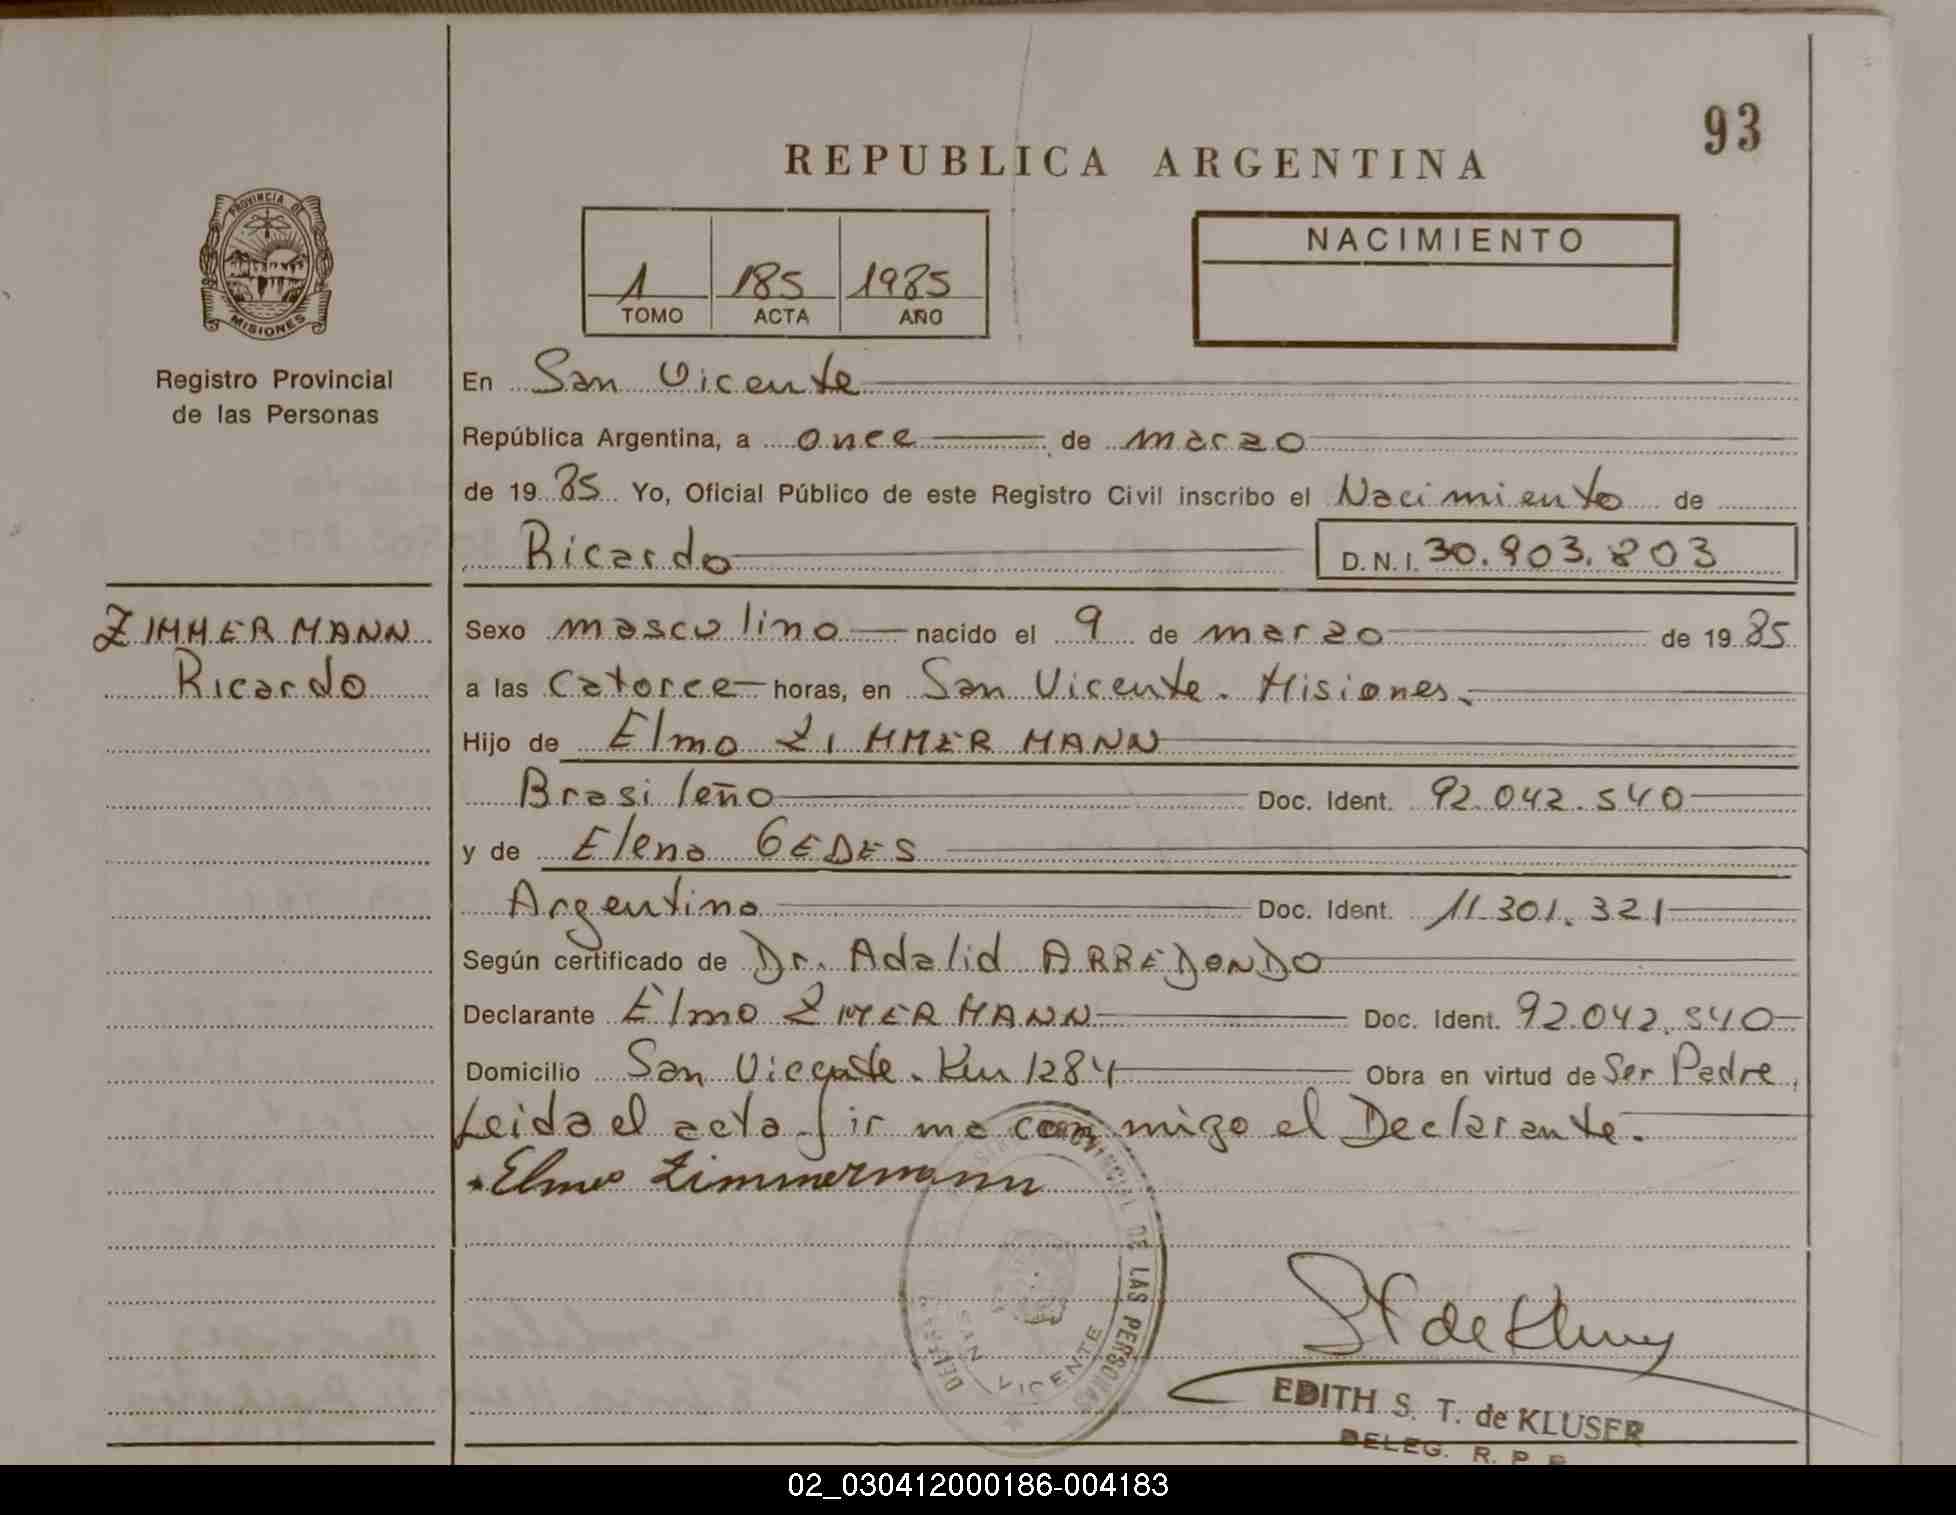 93
REPUBLICA ARGENTINA
PROVINCIA DE
MISIONES
Registro Provincial
de las Personas
1 185 1985
TOMO ACTA AÑO
NACIMIENTO
En San Vicente
República Argentina, a once de marzo
de 1985 Yo, Oficial Público de este Registro Civil inscribo el Nacimiento de
Ricardo D.N.I. 30.903.803
ZIMMERMANN
Ricardo
Sexo masculino nacido el 9 de marzo de 1985
a las catorce horas, en San Vicente. Misiones.
Hijo de Elmo ZIMMERMANN
Brasileño Doc. Ident. 92.042.540
y de Elena GEDES
Argentina Doc. Ident. 11.301.321
Según certificado de Dr. Adalid ARREDONDO
Declarante Elmo ZIMERMANN Doc. Ident. 92.042.540
Domicilio San Vicente. Km 1284 Obra en virtud de Ser Padre,
Leida el acta firma conmigo el Declarante.
Elmo Zimmermann
PROVINCIAL DE LAS PERSONAS
SAN VICENTE
EDITH S. T. de KLUSER
DELEG. R. P. P.
02_030412000186-004183